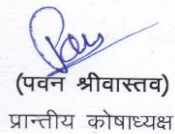 (पवन श्रीवास्तव)
प्रान्तीय कोषाध्यक्ष